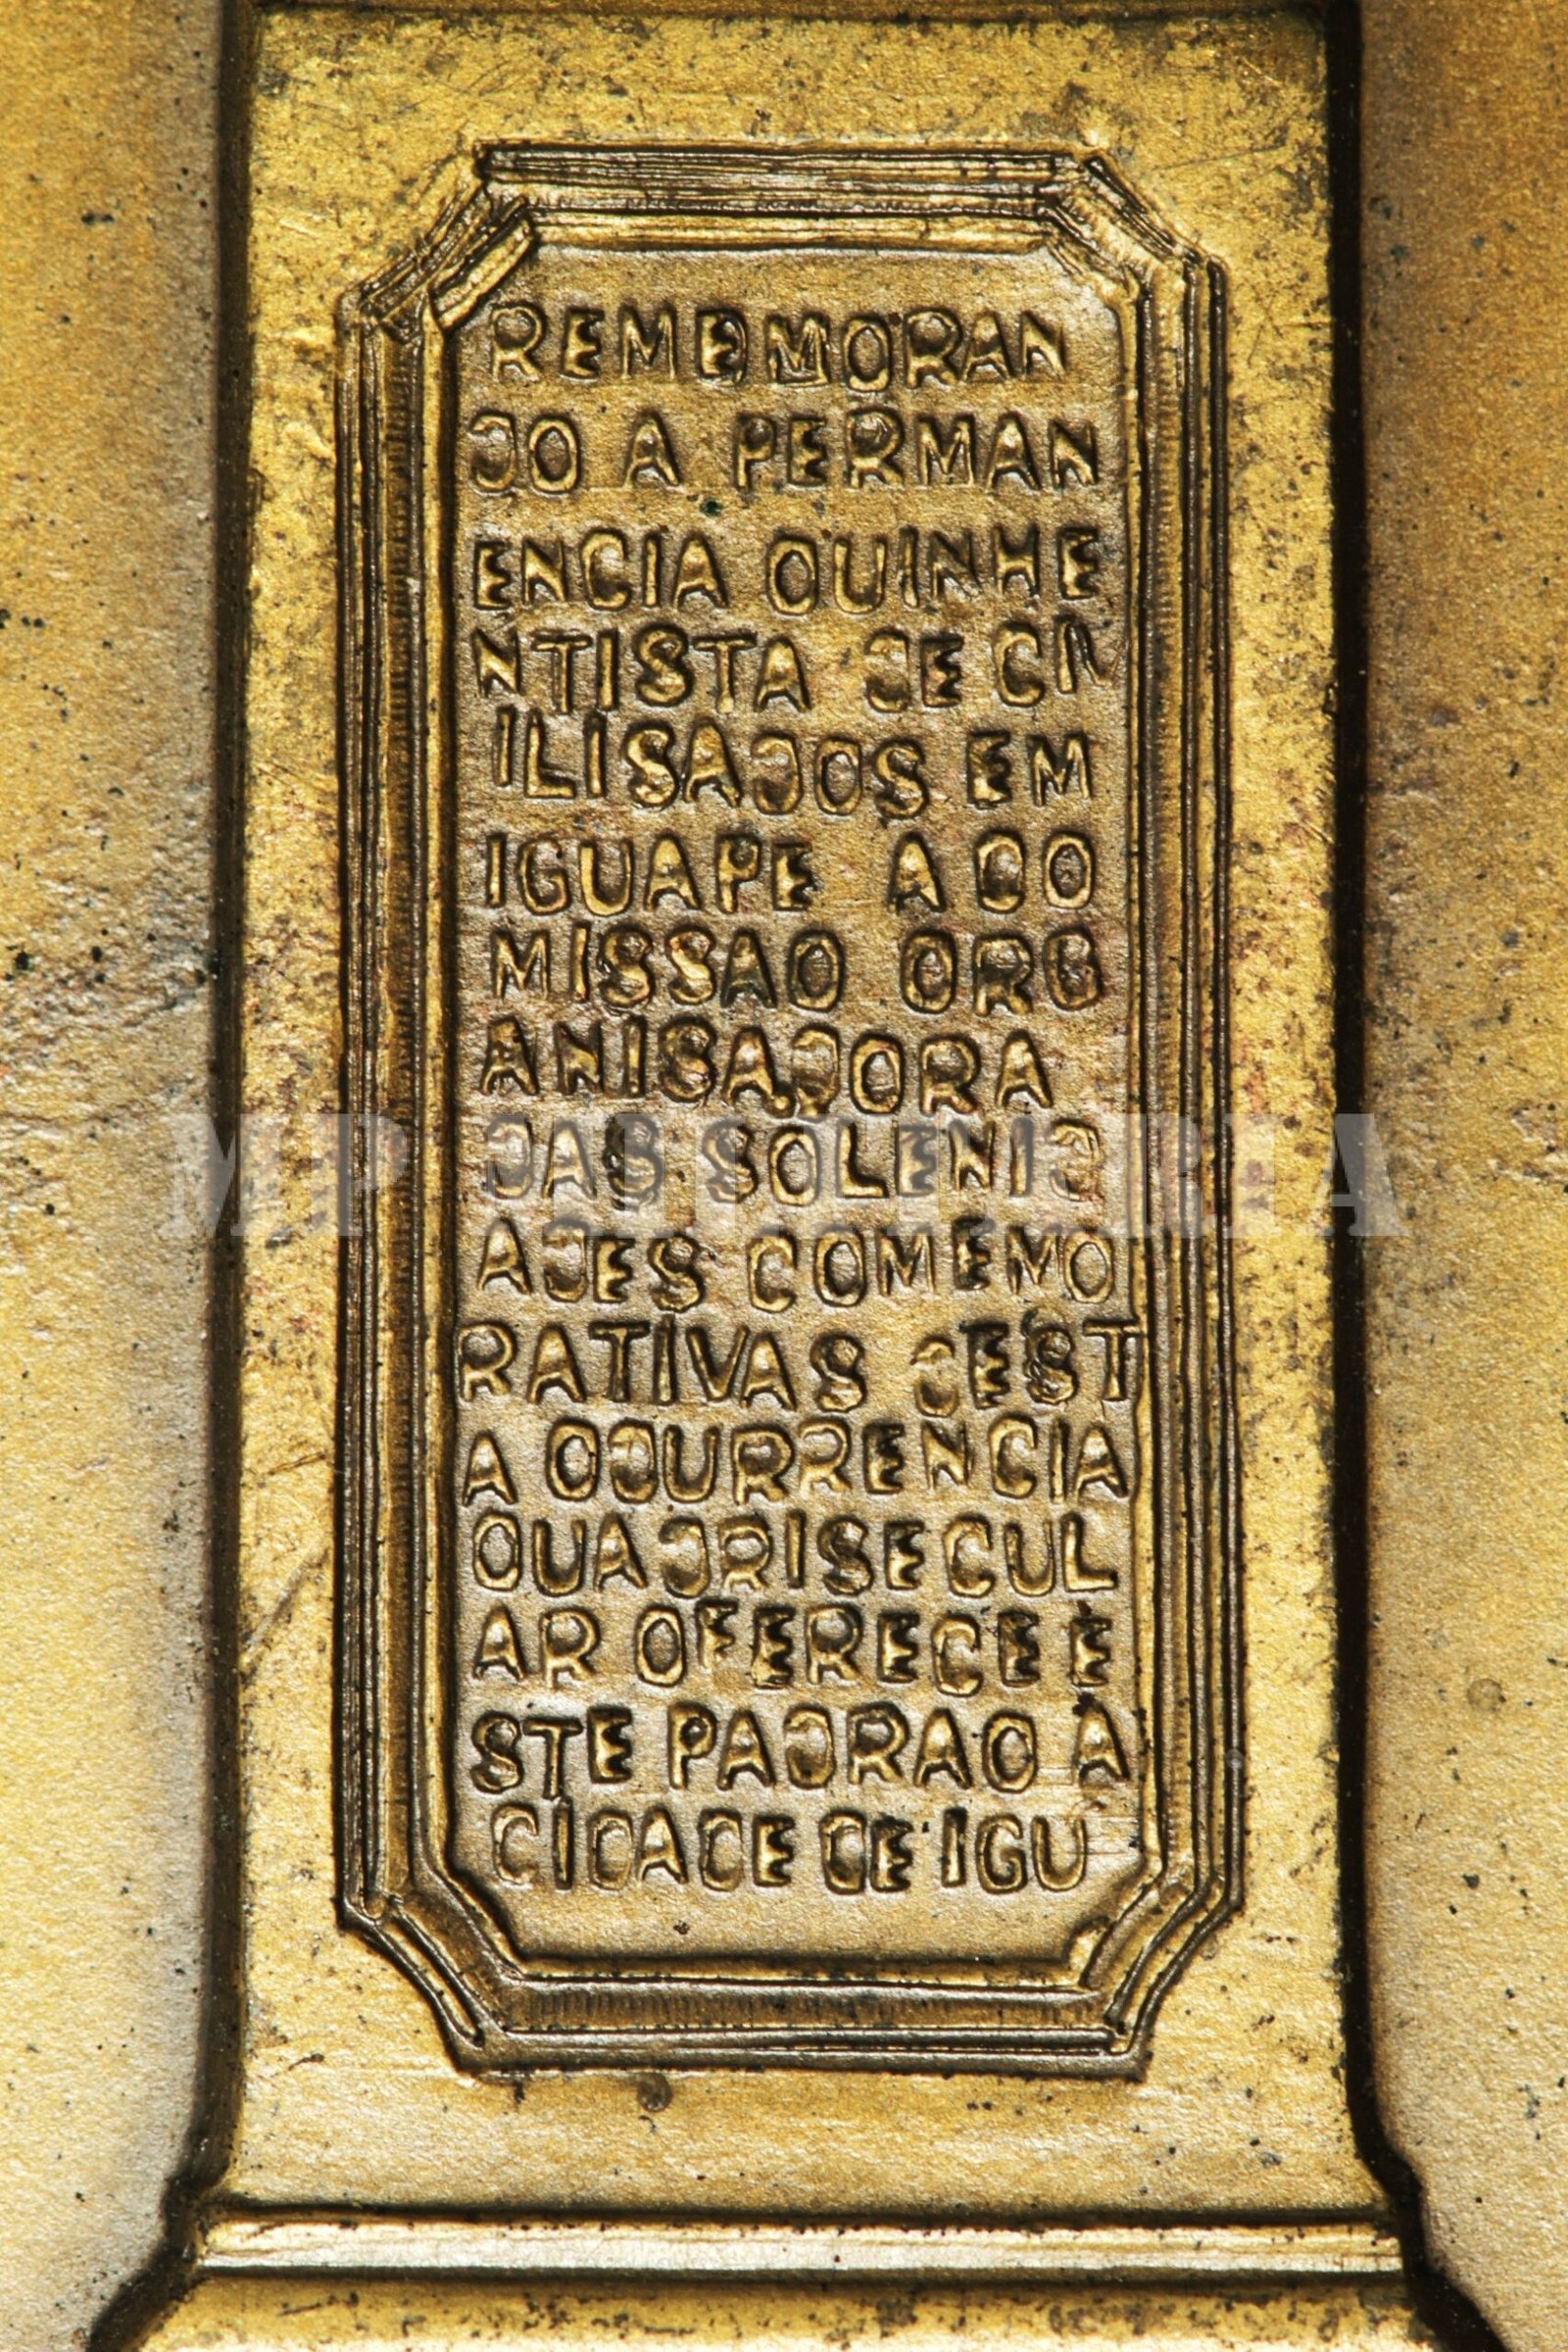 REMEMORAN
DO A PERMAN
ENCIA QUINHE
NTISTA DE CIV
ILISADOS EM
IGUAPE A CO
MISSAO ORG
ANISADORA
DAS SOLENID
ADES COMEMO
RATIVAS DEST
A OCURRENCIA
QUADRISECUL
AR OFERECE E
STE PADRAO A
CIDADE DE IGU